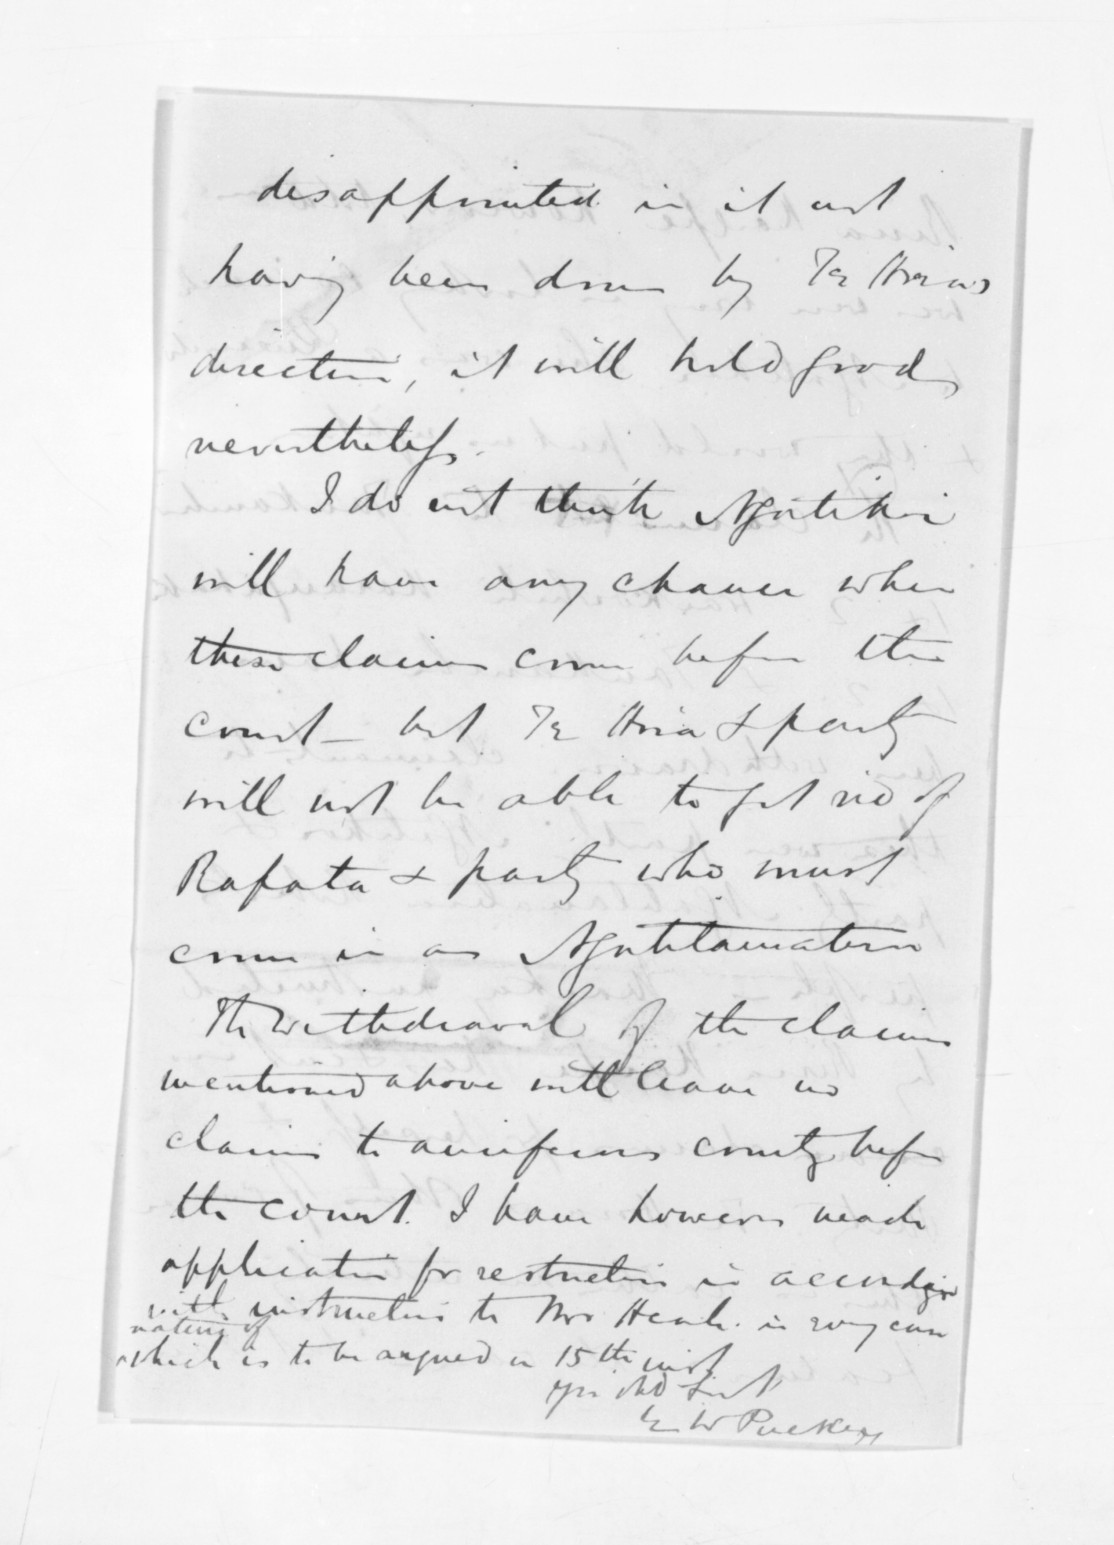 disappointed in it not
having been done by Te Hira's
direction, it will hold good
nevertheless.
I do not think Ngatikoi
will have any chance when
these claims come before the
court – but Te Hira & party
will not be able to get rid of
Ropata & party who must
come in as Ngatitamatera
The withdrawal of the claims
mentioned above will leave no
claims to auriferous country before
the court. I have however made
application for restriction in accordance
with instruction to Mr in every case
nature of
which is to be argued on 15th inst
Yr obd Svt
E W Puckey